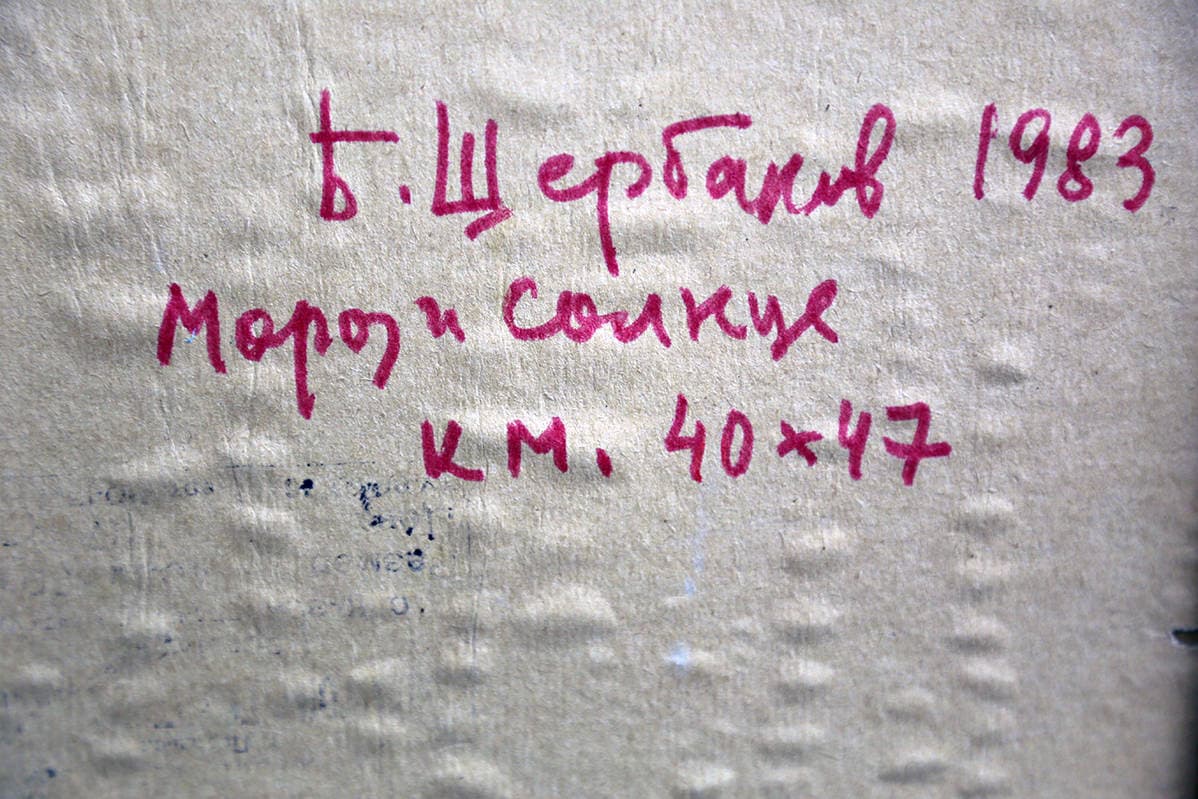 Б. Щербаков 1983
Мороз и солнце
км. 40×47